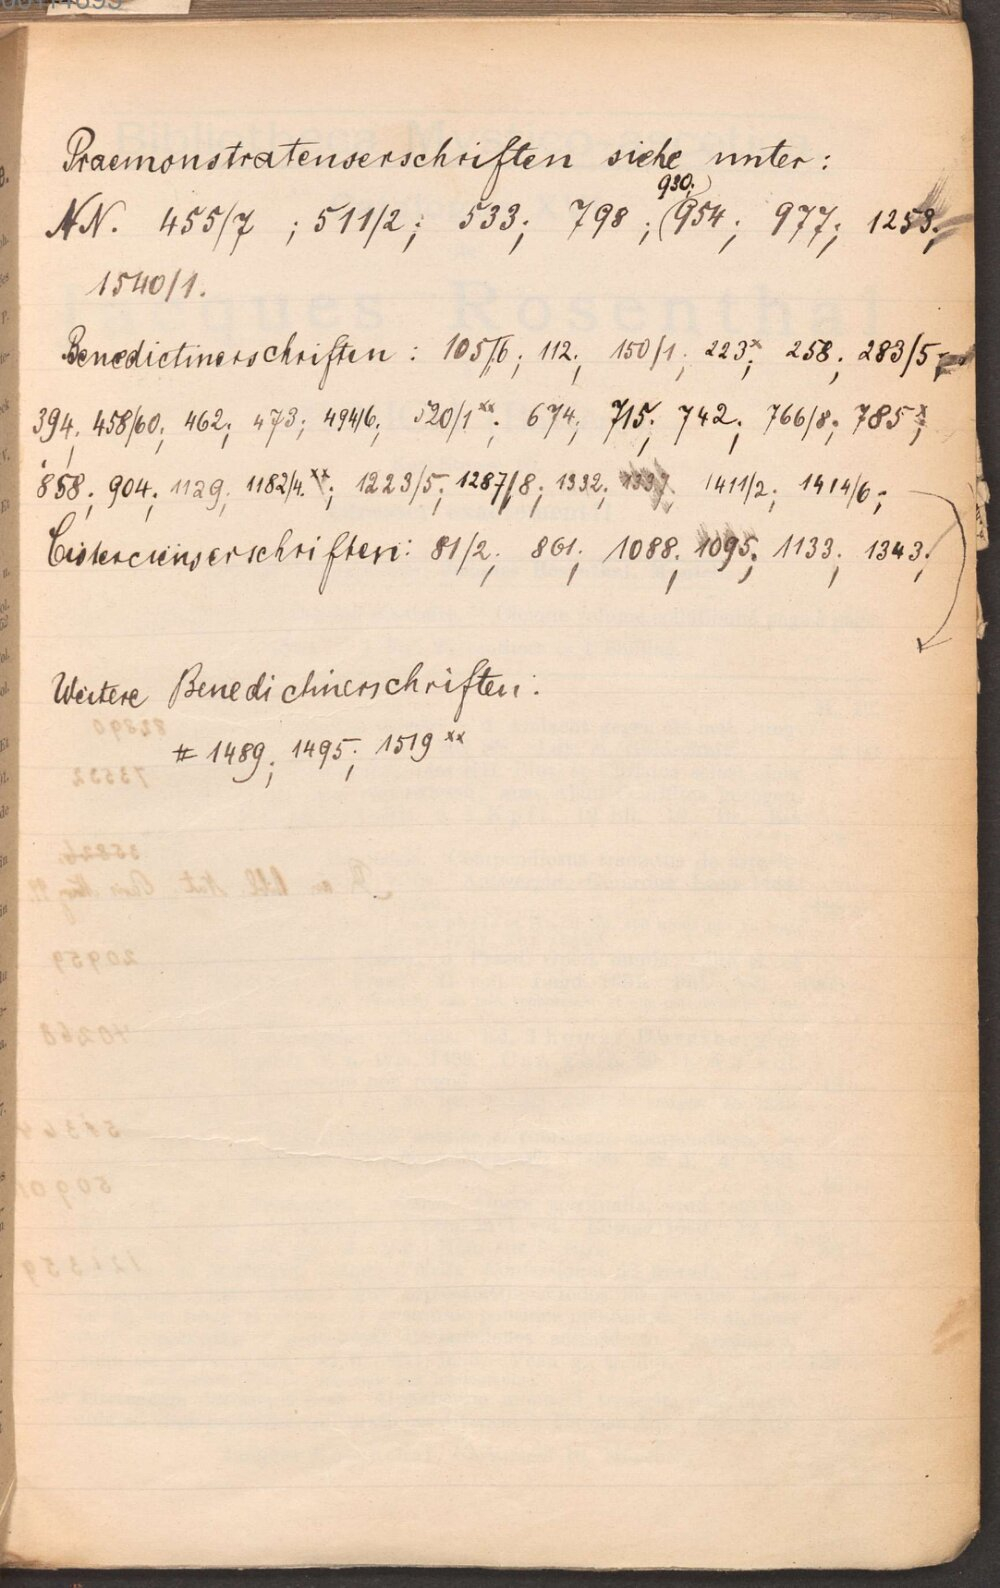 Praemonstratenserschriften siehe unter:
930;
NN. 455/7 ; 511/2; 533; 798; (954; 977; 1253;
1540/1.
Benedictinerschriften: 105/6; 112; 150/1; 223x; 258; 283/5;
394; 458/60; 462; 473; 494/6; 520/1xx; 674; 715; 742; 766/8; 785x;
858; 904; 1129; 1182/4.xx; 1223/5; 1287/8; 1332; 1411/2; 1414/6;
Cisterciensserschriften: 81/2; 861; 1088; 1095; 1133; 1343;
Weitere Benedictinerschriften:
# 1489; 1495; 1519xx